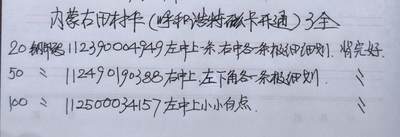 内蒙古田村卡(呼和浩特磁卡开通)3全
20 112390004949左中上一条右中各一条极细细划. 背完好.
50 〃 112490190388右中上,左下角各一条极细划. 〃
100 〃 112500034157左中上小小白点. 〃